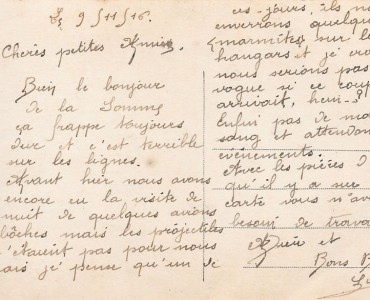 Le 9/11/16.
Cheres petites Amies,
Bien le bonjour
de la Somme
ça frappe toujours
dur et c'est terrible
sur les lignes.
Avant hier nous avons
encore eu la visite de
nuit de quelques avions
bôches mais les projectiles
n'étaient pas pour nous
mais je pense qu'un de
ces-jours, ils no
enverrons quelque
(marmites) sur le
hangars et je cro
nous serions pas
vogue si ce coup
arrivait, hein-!
Enfin pas de ma
sang et attendon
évènements.
Avec les prières
qu'il y a sur
carte vous n'av
besoin de trava
et
Bons B